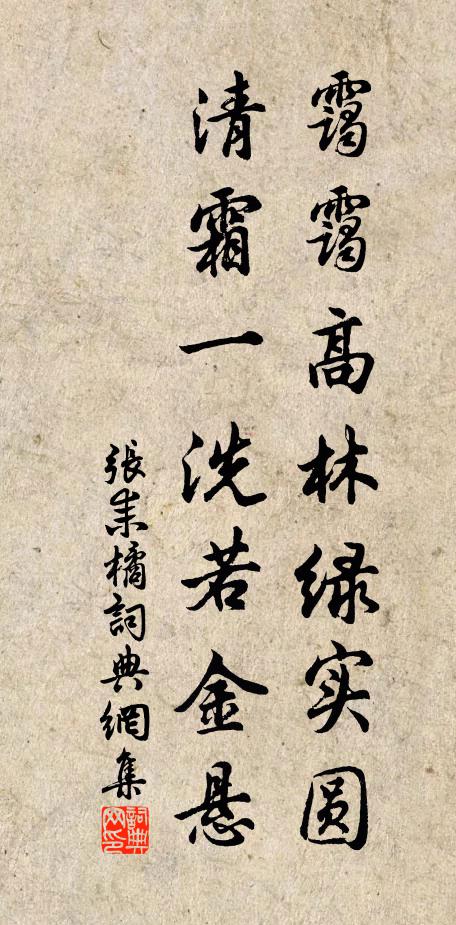 霭霭高林绿实圆
清霜一洗若金悬
張耒橘詞典網集
詞典网印